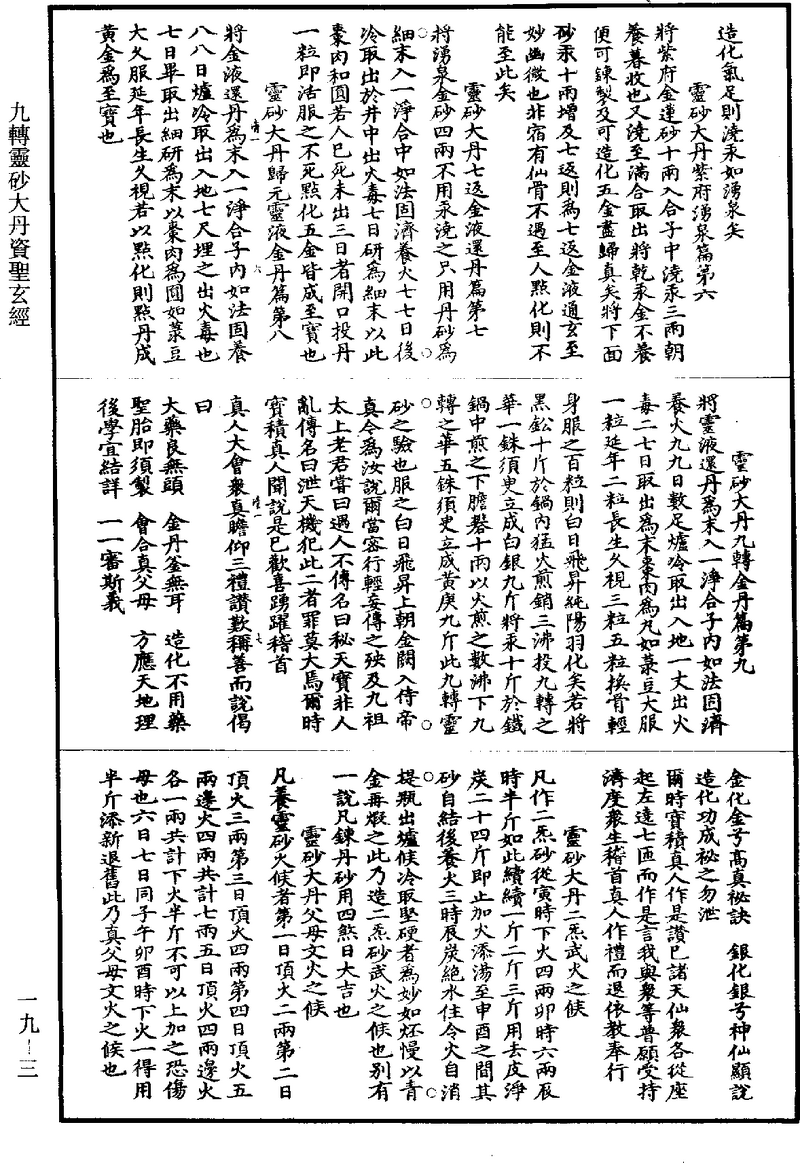 造化氣足則澆汞如湧泉矣
靈砂大丹紫府湧泉篇第六
將紫府金蓮砂十兩入合子中澆汞三兩朝
養暮收也又澆至滿合取出將乾汞金不養
便可鍊製及可造化五金盡歸真矣將下面
砂汞十兩增及七返則為七返金液通玄至
妙幽微也非宿有仙骨不遇至人點化則不
能至此矣
靈砂大丹七返金液還丹篇第七
將湧泉金砂四兩不用汞澆之只用丹砂為
細末入一淨合中如法固濟養火七七日後
冷取出於井中出火毒七日研為細末以此
棗肉和圓若人已死未出三日者開口投丹
一粒即活服之不死點化五金皆成至寶也
靈砂大丹歸元靈液金丹篇第八
將金液還丹為末入一淨合子內如法固養
八八日爐冷取出入地七尺埋之出火毒也
七日畢取出細研為末以棗肉為圓如菉豆
大久服延年長生久視若以點化則點丹成
黃金為至寶也
靈砂大丹九轉金丹篇第九
將靈液還丹為末入一淨合子內如法固濟
養火九九日數足爐冷取出入地一丈出火
毒二七日取出為末棗肉為丸如菉豆大服
一粒延年二粒長生久視三粒五粒換骨輕
身服之百粒則白日飛昇純陽羽化矣若將
黑鉛十斤於鍋內猛火煎銷三沸投九轉之
華一銖須臾立成白銀九斤將汞十斤於鐵
鍋中煎之下膽礬十兩以火煎之數沸下九
轉之華五銖須臾立成黃庚九斤此九轉靈
砂之驗也服之白日飛昇上朝金闕入侍帝
真今為汝說爾當密行輕妄傳之殃及九祖
太上老君嘗曰遇人不傳名曰秘天寶非人
亂傳名曰泄天機犯此二者罪莫大焉爾時
寶積真人聞說是已歡喜踴躍稽首
真人大會眾真瞻仰三禮讚歎稱善而說偈
曰
大藥良無頭　金丹釜無耳　造化不用藥
聖胎即須製　會合真父母　方應天地理
後學宜結詳　一一審斯義
金化金兮高真祕訣　銀化銀兮神仙顯說
造化功成祕之勿泄
爾時寶積真人作是讚已諸天仙眾各從座
起左遶七匝而作是言我與眾等普願受持
濟度眾生稽首真人作禮而退依教奉行
靈砂大丹二炁武火之候
凡作二炁砂從寅時下火四兩卯時六兩辰
時半斤如此續續一斤二斤三斤用去皮淨
炭二十四斤即止加火添湯至申酉之間其
砂自結後養火三時辰炭絕水住令火自消
提瓶出爐候冷取堅硬者為妙如烌慢以青
金再煅之此乃造二炁砂武火之候也別有
一說凡鍊丹砂用四煞日大吉也
靈砂大丹父母文火之候
凡養靈砂火候者第一日頂火二兩第二日
頂火三兩第三日頂火四兩第四日頂火五
兩邊火四兩共計七兩五日頂火四兩邊火
各一兩共計下火半斤不可以上加之恐傷
母也六日七日同子午卯酉時下火一得用
半斤添新退舊此乃真父母文火之候也
九轉靈砂大丹資聖玄經
一九－三